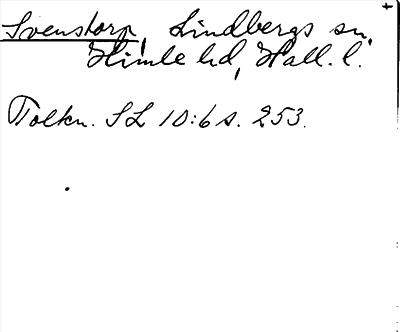 Svenstorp, Lindbergs sn,
Himle hd, Hall. l.
Tolkn. SL 10:6 s. 253.